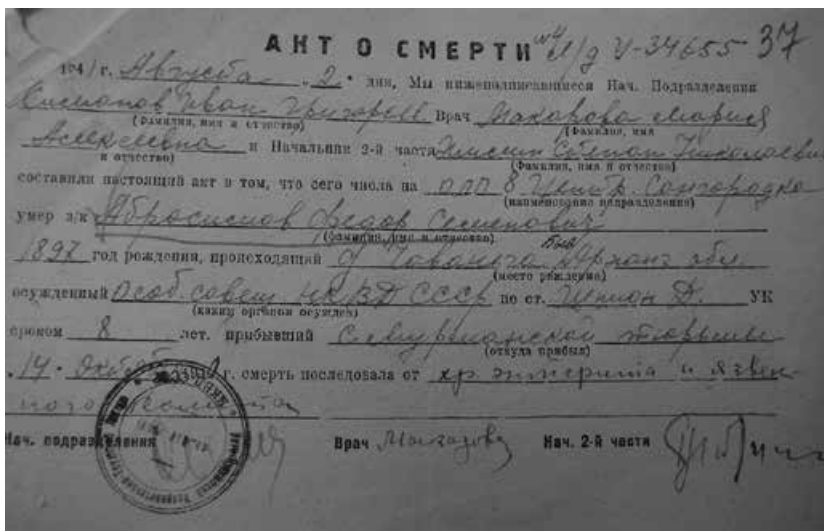 АКТ О СМЕРТИ л/д У-34655 37
194/г. Августа „2" дня, Мы нижеподписавшиеся Нач. Подразделения
Иван Григорьев Врач Макарова Мария
(фамилия, имя и отчество) (Фамилия, имя
Алексеевна и Начальник 2-й части Степан Николаевич
и отчество) (Фамилия, имя и отчество)
составили настоящий акт в том, что сего числа на ОЛП 8 Центр. Сангородка
(наименование подразделения)
умер з/к Абросимов Федор Семенович
(фамилия, имя и отчество)
1897 год рождения, происходящий д. Чаваньга Арханг обл.
(место рождения)
осужденный Особ. совещ НКВД СССР по ст. Шпион Д. УК
(каким органом осужден)
сроком 8 лет. прибывший с Мурманской тюрьмы
(откуда прибыл)
„14" Октябр г. смерть последовала от хр энтерита и язвен
ного колита
Нач. подразделения Врач Макарова Нач. 2-й части